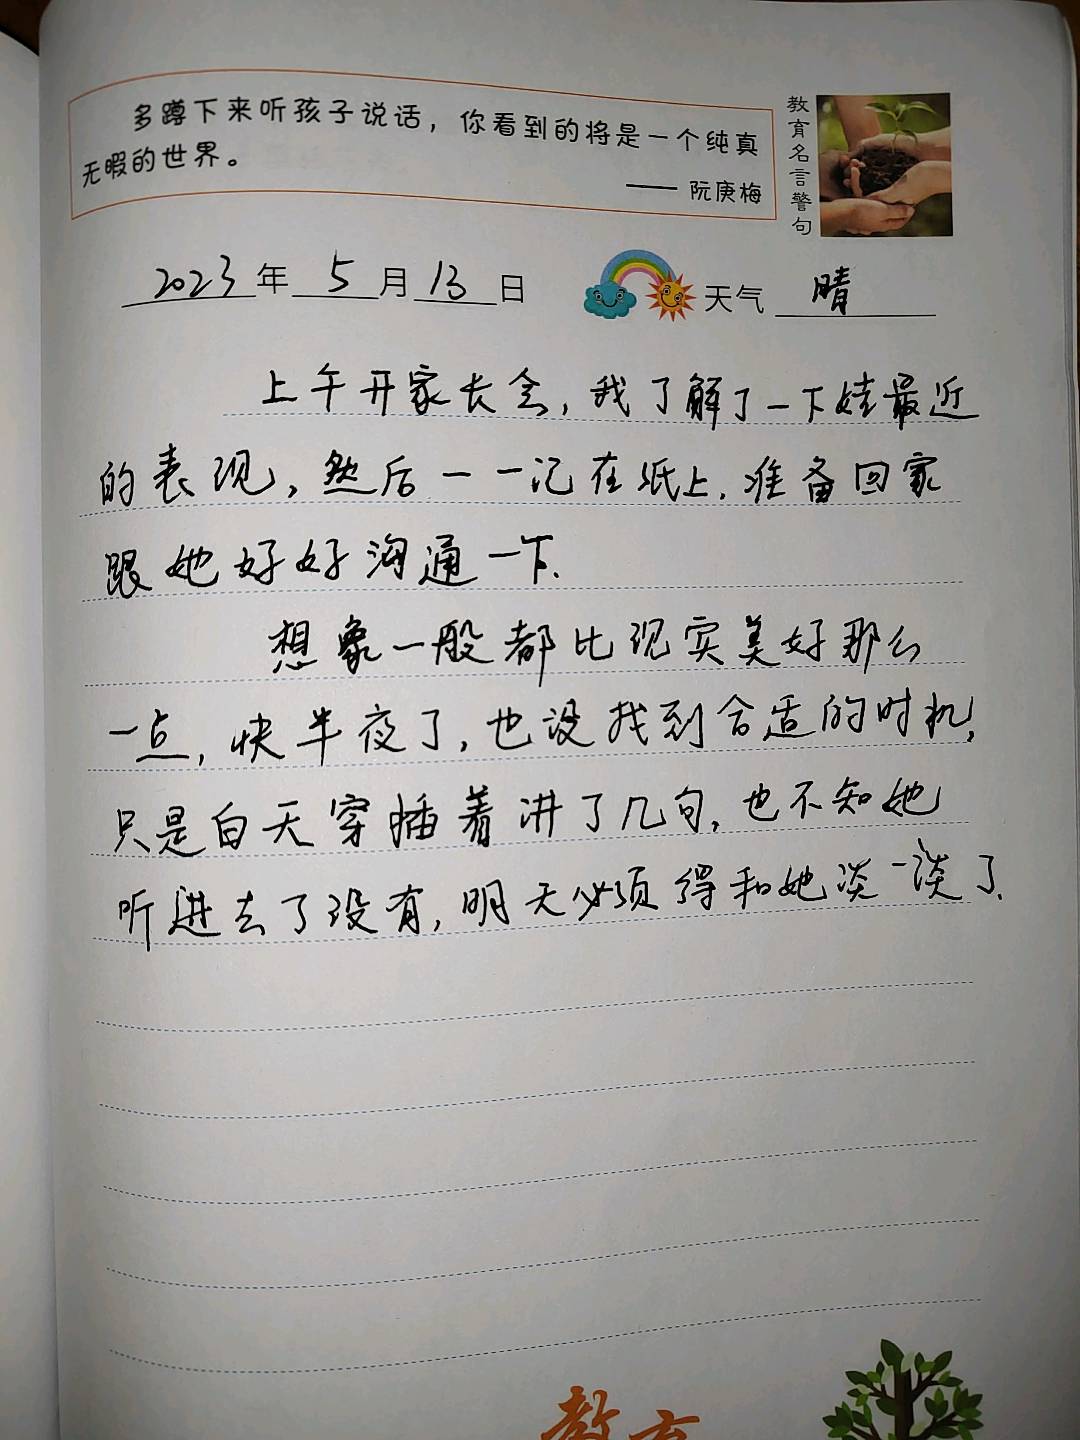 多蹲下来听孩子说话，你看到的将是一个纯真
无暇的世界。
—— 阮庚梅
教育名言警句
2023年 5月13日 天气 晴
上午开家长会，我了解了一下娃最近
的表现，然后一一记在纸上.准备回家
跟她好好沟通一下.
想象一般都比现实美好那么
一点，快半夜了，也没找到合适的时机，
只是白天穿插着讲了几句，也不知她
听进去了没有，明天必须得和她谈一谈了.
教育